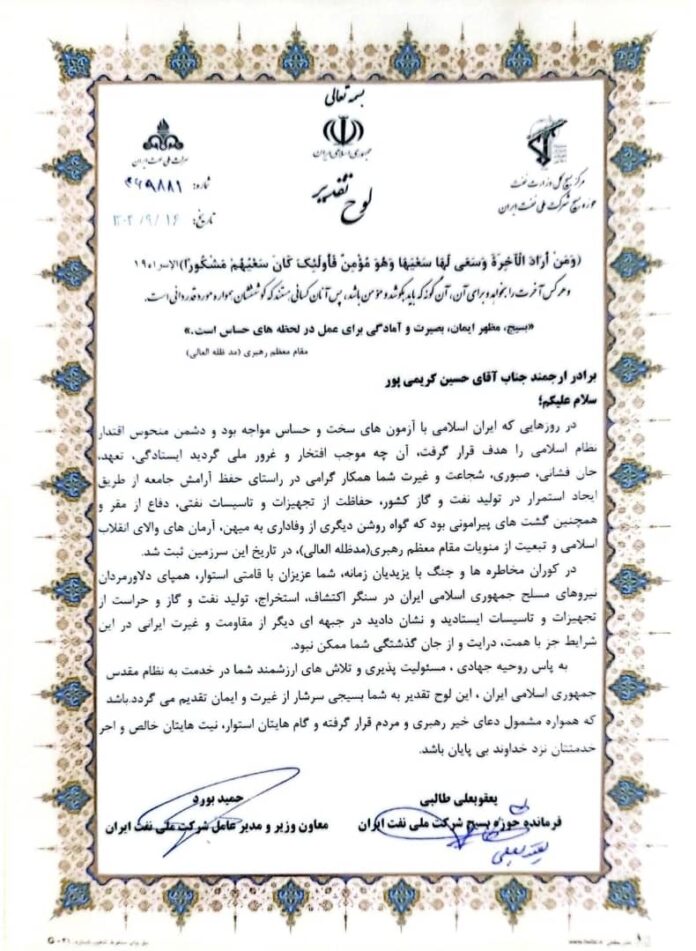 بسمه تعالی
جمهوری اسلامی ایران
شرکت ملی نفت ایران
مرکز بسیج کل وزارت نفت
حوزه بسیج شرکت ملی نفت ایران
شماره:
تاریخ:
لوح تقدیر
(وَمَن أَرَادَ الْآخِرَةَ وَسَعَى لَهَا سَعْيَهَا وَهُوَ مُؤْمِنٌ فَأُولَئِكَ كَانَ سَعْيُهُم مَشْكُورًا) الاسراء ۱۹
و هر کس آخرت را بخواهد و برای آن، آن گونه که باید بکوشد و مؤمن باشد، پس آنان کسانی هستند که کوششان همواره مورد قدردانی است.
«بسیج، مظهر ایمان، بصیرت و آمادگی برای عمل در لحظه های حساس است.»
مقام معظم رهبری (مد ظله العالی)
برادر ارجمند جناب آقای حسین کریمی پور
سلام علیکم؛
در روزهایی که ایران اسلامی با آزمون های سخت و حساس مواجه بود و دشمن منحوس اقتدار
نظام اسلامی را هدف قرار گرفت، آن چه موجب افتخار و غرور ملی گردید ایستادگی، تعهد،
جان فشانی، صبوری، شجاعت و غیرت شما همکار گرامی در راستای حفظ آرامش جامعه از طریق
ایجاد استمرار در تولید نفت و گاز کشور، حفاظت از تجهیزات و تاسیسات نفتی، دفاع از مقر و
همچنین گشت های پیرامونی بود که گواه روشن دیگری از وفاداری به میهن، آرمان های والای انقلاب
اسلامی و تبعیت از منویات مقام معظم رهبری(مدظله العالی)، در تاریخ این سرزمین ثبت شد.
در کوران مخاطره ها و جنگ با یزیدیان زمانه، شما عزیزان با قامتی استوار، همپای دلاورمردان
نیروهای مسلح جمهوری اسلامی ایران در سنگر اکتشاف، استخراج، تولید نفت و گاز و حراست از
تجهیزات و تاسیسات ایستادید و نشان دادید در جبهه ای دیگر از مقاومت و غیرت ایرانی در این
شرایط جز با همت، درایت و از جان گذشتگی شما ممکن نبود.
به پاس روحیه جهادی ، مسئولیت پذیری و تلاش های ارزشمند شما در خدمت به نظام مقدس
جمهوری اسلامی ایران ، این لوح تقدیر به شما بسیجی سرشار از غیرت و ایمان تقدیم می گردد.باشد
که همواره مشمول دعای خیر رهبری و مردم قرار گرفته و گام هایتان استوار، نیت هایتان خالص و اجر
خدمتتان نزد خداوند بی پایان باشد.
یعقوبعلی طالبی
فرمانده حوزه بسیج شرکت ملی نفت ایران
حمید بورد
معاون وزیر و مدیر عامل شرکت ملی نفت ایران